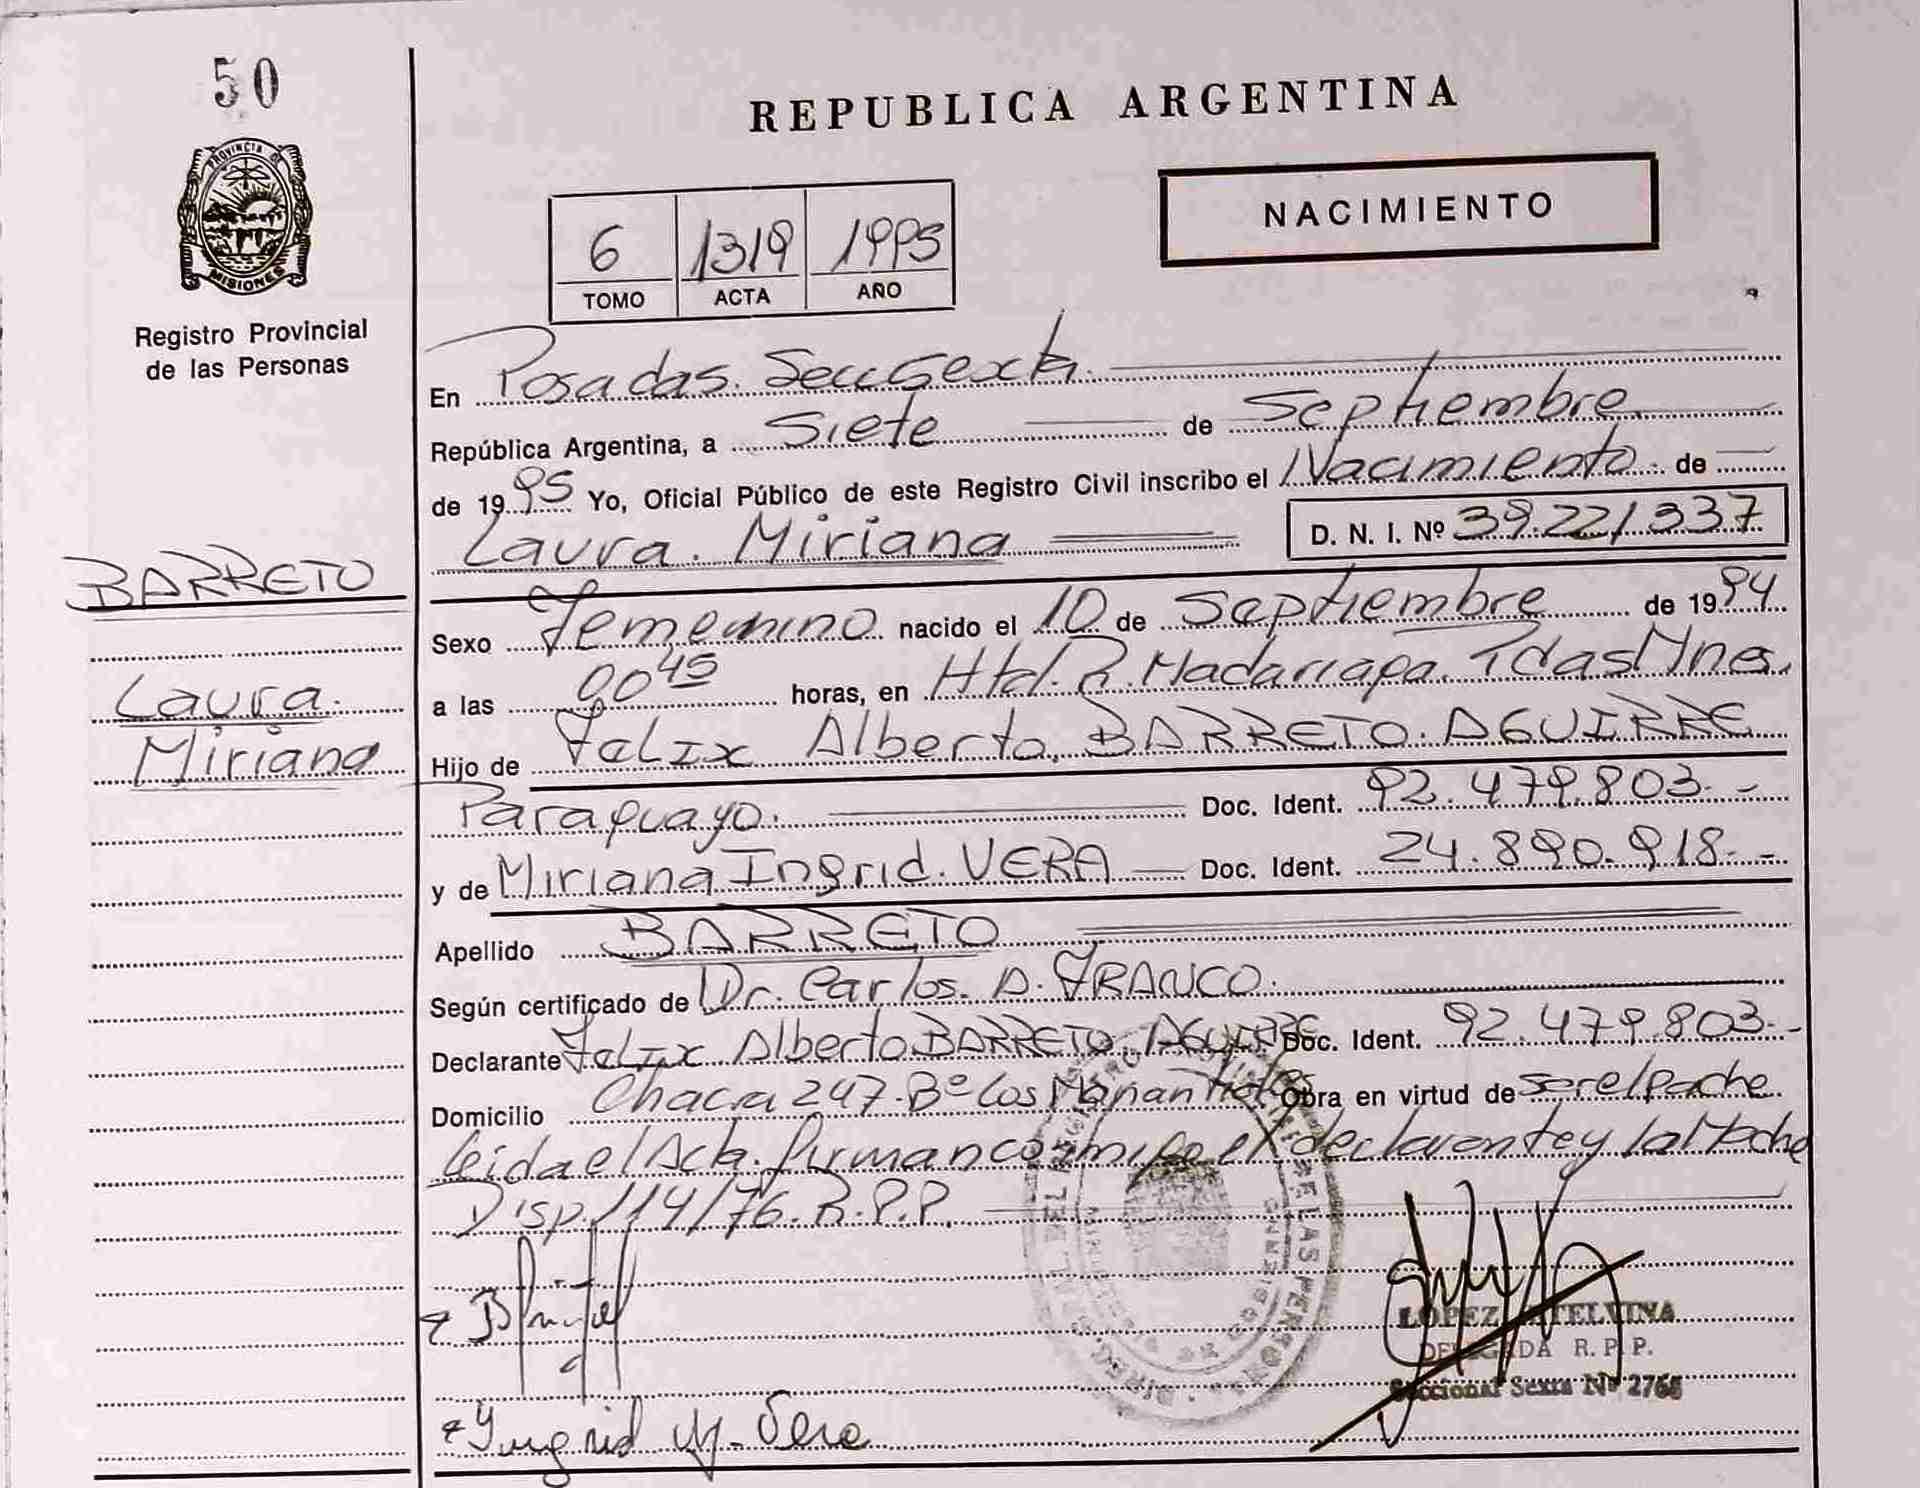 50
PROVINCIA DE
MISIONES
Registro Provincial
de las Personas
REPUBLICA ARGENTINA
NACIMIENTO
6 1319 1995
TOMO ACTA AÑO
En Posadas. Secc Sexta.
República Argentina, a Siete de Septiembre
de 1995 Yo, Oficial Público de este Registro Civil inscribo el Nacimiento. de
Laura. Miriana D. N. I. Nº 39.221.337
BARRETO
Laura.
Miriana
Sexo Femenino nacido el 10 de Septiembre de 1994
a las 00 45 horas, en Htal. R. Madariaga. Pdas Mnes.
Hijo de Felix Alberto, BARRETO. AGUIRRE
Paraguayo. Doc. Ident. 92.479.803.-
y de Miriana Ingrid. VERA Doc. Ident. 24.890.918.-
Apellido BARRETO
Según certificado de Dr. Carlos. A. FRANCO.
Declarante Felix Alberto BARRETO AGUIRRE Doc. Ident. 92.479.803.-
Domicilio Chacra 247. Bº Los Manantiales Obra en virtud de ser el padre
leida el Acta. firman conmigo el declarante y la Madre
Disp. 114/76. R.P.P.
LOPEZ ETELVINA
DELEGADA R. P. P.
Seccional Sexta Nº 2765
Ingrid M. Vera